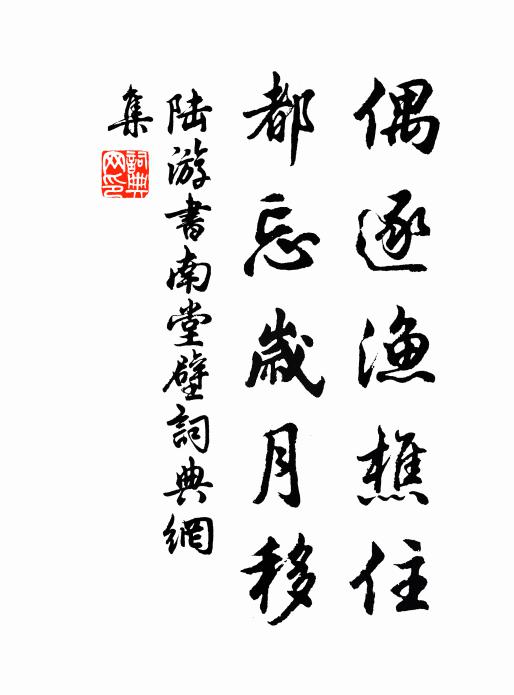 偶逐漁樵住
都忘歲月移
陸游書南堂壁詞典網
集
詞典
网印